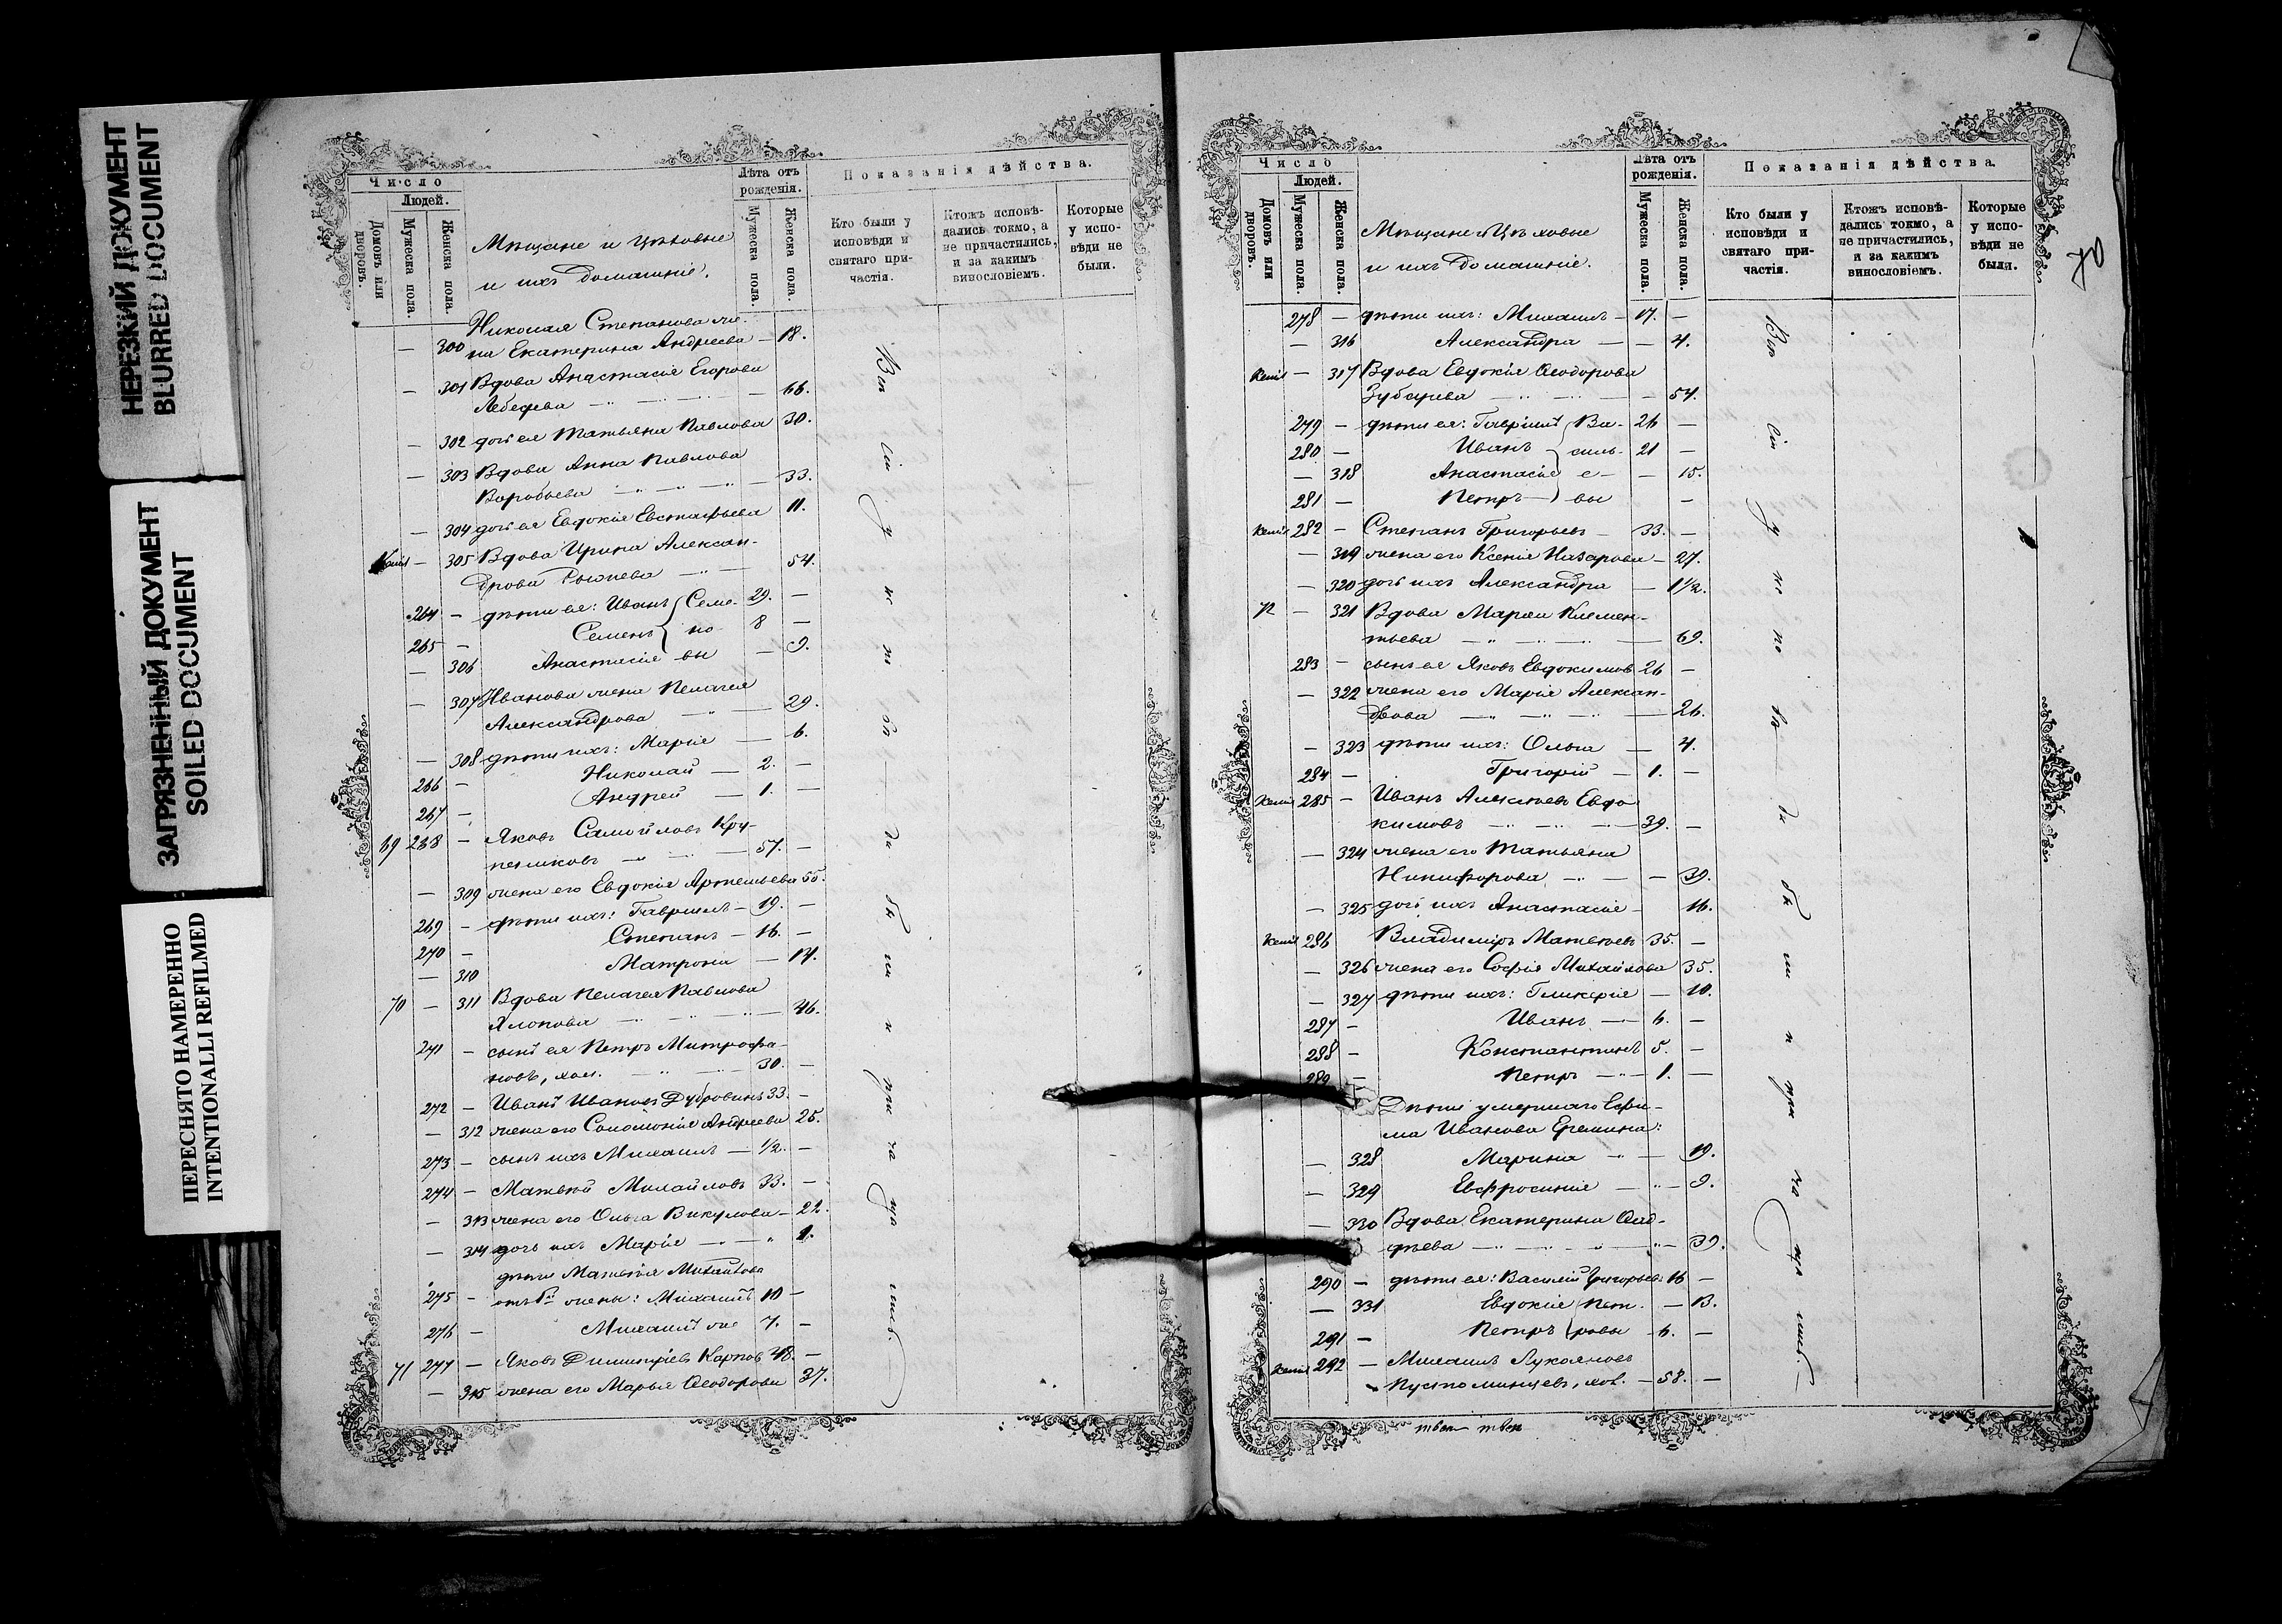 НЕРЕЗКИЙ ДОКУМЕНТ
BLURRED DOCUMENT
ЗАГРЯЗНЕННЫЙ ДОКУМЕНТ
SOILED DOCUMENT
ПЕРЕСНЯТО НАМЕРЕННО
INTENTIONALLI REFILMED
Число
Людей.
Домовъ или дворовъ.
Мужеска пола.
Женска пола.
Мѣщане и цѣховые
и ихъ домашніе.
Лѣта отъ рожденія.
Мужеска пола.
Женска пола.
Показанія дѣйства.
Кто были у исповѣди и святаго причастія.
Ктожъ исповѣдались токмо, а не причастились, и за какимъ винословіемъ.
Которые у исповѣди не были.
Николая Степанова же-
— 300 на Екатерина Андреева — 18.
— 301 Вдова Анастасія Егорова
Лебедева — 66.
— 302 дочь ея Татьяна Павлова 30.
— 303 Вдова Анна Павлова
Воробьева — 33.
— 304 дочь ея Евдокія Евстафьева 11.
— 305 Вдова Ирина Алексан-
дрова — 54.
264 — дѣти ея: Иванъ Семе- 29. —
265 — Семенъ но- 8 —
— 306 Анастасія вы — 9.
— 307 Иванова жена Пелагея
Александрова — 29.
— 308 дѣти ихъ: Марія — 6.
266 — Николай — 2. —
267 — Андрей — 1. —
69 268 — Яковъ Самойловъ Кру-
пениковъ — 57. —
— 309 жена его Евдокія Артемьева 55.
269 — дѣти ихъ: Гавріилъ — 19. —
270 — Степанъ — 16. —
— 310 Матрона — 14.
70 — 311 Вдова Пелагея Павлова
Хлопова — 46.
271 — сынъ ея Петръ Митрофа-
новъ, хол. — 30. —
272 — Иванъ Ивановъ Дубровинъ 33. —
— 312 жена его Соломонія Андреева 25.
273 — сынъ ихъ Михаилъ — 1/2. —
274 — Матвѣй Михайловъ 33. —
— 313 жена его Ольга Викулова — 22.
— 314 дочь ихъ Марія — 1.
дѣти Матвѣя Михайлова
275 — отъ 1й жены: Михаилъ 10 —
276 — Михаилъ же 7. —
71 277 — Яковъ Димитріевъ Карповъ 48. —
— 315 жена его Марья Ѳеодорова 37.
Всѣ
сіи
у
ис
по
вѣ
ди
бы
ли
и
при
ча
ща
лись
70
Число
Людей.
Домовъ или дворовъ.
Мужеска пола.
Женска пола.
Мѣщане и Цѣховые
и ихъ домашніе.
Лѣта отъ рожденія.
Мужеска пола.
Женска пола.
Показанія дѣйства.
Кто были у исповѣди и святаго причастія.
Ктожъ исповѣдались токмо, а не причастились, и за какимъ винословіемъ.
Которые у исповѣди не были.
278 — дѣти ихъ: Михаилъ — 17. —
— 316 Александра — — 4.
— 317 Вдова Евдокія Ѳеодорова
Зубарева — — 54.
279 — дѣти ея: Гавріилъ Ва- 26 —
280 — Иванъ силь- 21 —
— 318 Анастасія е- — 15.
281 — Петръ вы —
282 — Степанъ Григорьевъ — 33. —
— 319 жена его Ксенія Назарова — 27.
— 320 дочь ихъ Александра — 1 1/2.
72 — 321 Вдова Марѳа Климен-
тьева — 69.
283 — сынъ ея Яковъ Евдокимовъ 26 —
— 322 жена его Марія Алексан-
дрова — 26.
— 323 дѣти ихъ: Ольга — 4.
284 — Григорій — 1. —
285 — Иванъ Алексѣевъ Евдо-
кимовъ — 39. —
— 324 жена его Татьяна
Никифорова — — 39.
— 325 дочь ихъ Анастасія — 16.
286 Владиміръ Матвѣевъ 35. —
— 326 жена его Софія Михайлова 35.
— 327 дѣти ихъ: Гликерія — 10.
287 — Иванъ — 6. —
288 — Константинъ 5. —
289 — Петръ — 1. —
Дѣти умершаго Ефи-
ма Иванова Еремина:
— 328 Марина — 19.
— 329 Евфросинія — 9.
— 330 Вдова Екатерина Ѳад-
дѣева — 39.
290 — дѣти ея: Василій Григорьевъ 16 —
— 331 Евдокія Пет- — 13.
291 — Петръ ровы — 6. —
292 — Михаилъ Лукояновъ
Пустомницевъ, хол. — 58. —
Всѣ
сіи
у
ис
по
вѣ
ди
бы
ли
и
при
ча
ща
лись.